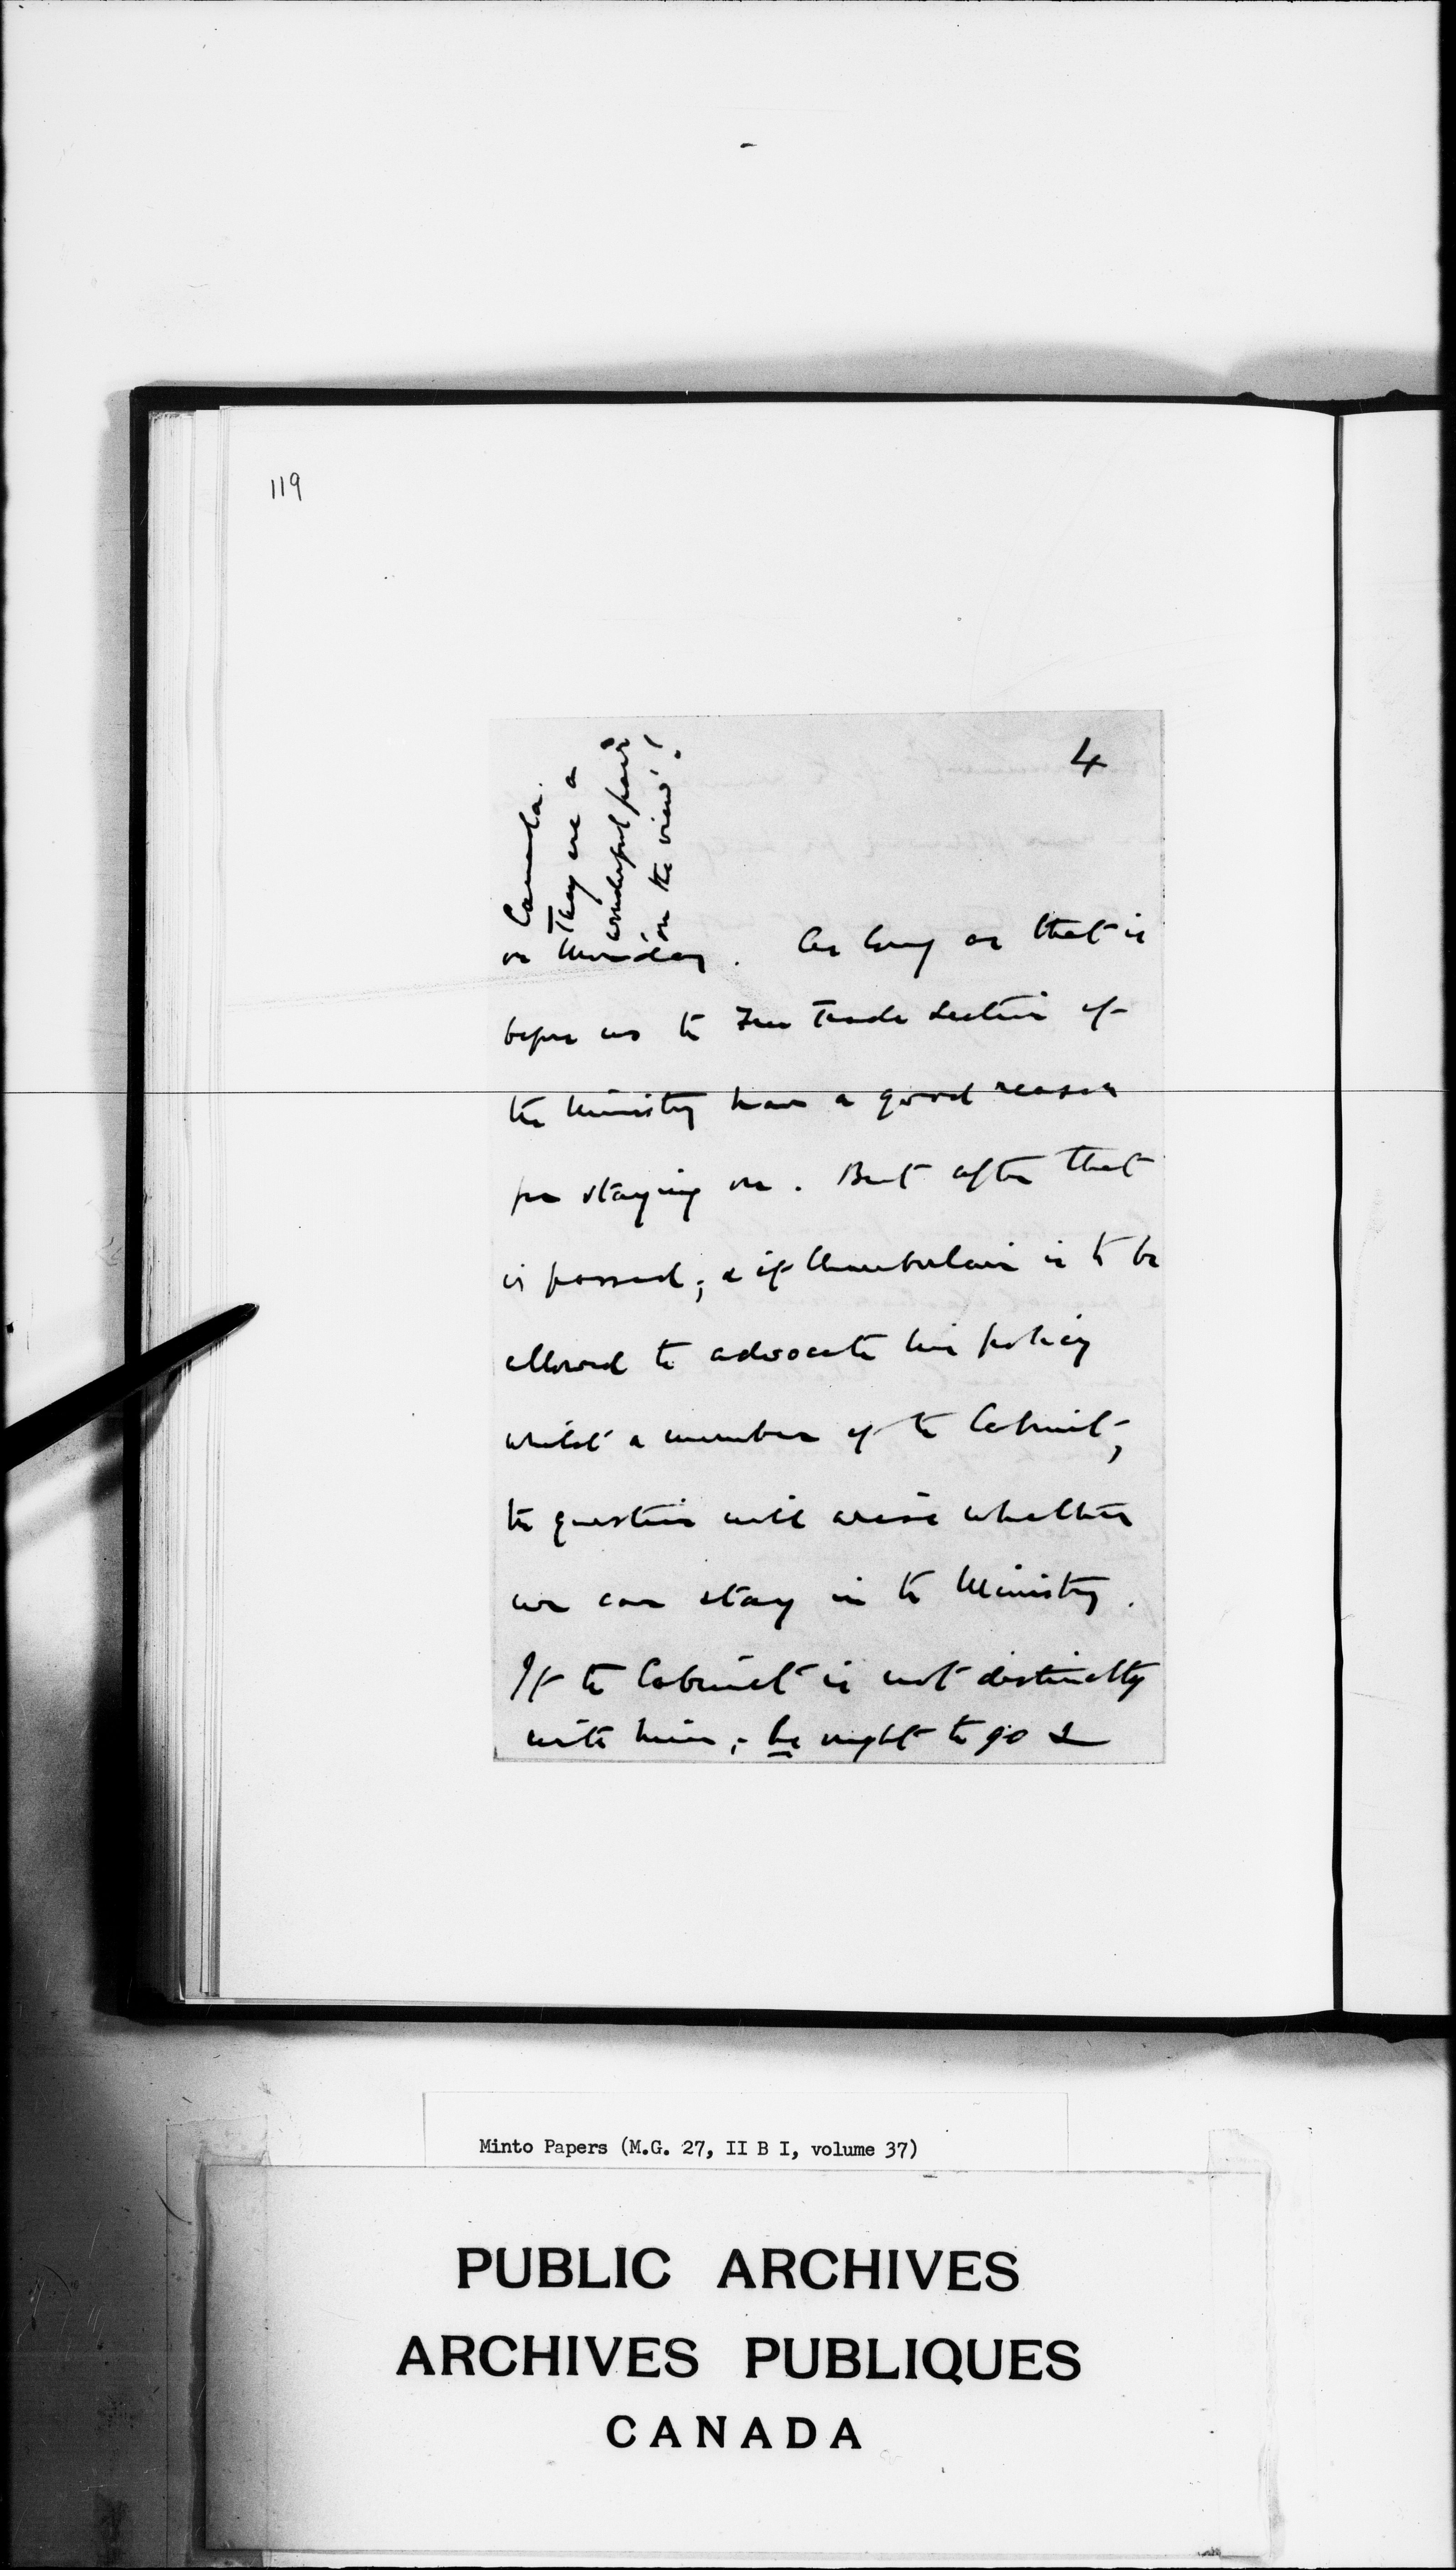 119
4
Canada.
They are a
wonderful pair
"on the view"!
on Monday. As long as that is
before us the Free Trade section of
the Ministry have a good reason
for staying on. But after that
is passed; & if Chamberlain is to be
allowed to advocate his policy
whilst a member of the Cabinet,
the question will arise whether
we can stay in the Ministry.
If the Cabinet is not distinctly
with him, - he ought to go &
Minto Papers (M.G. 27, II B I, volume 37)
PUBLIC ARCHIVES
ARCHIVES PUBLIQUES
CANADA